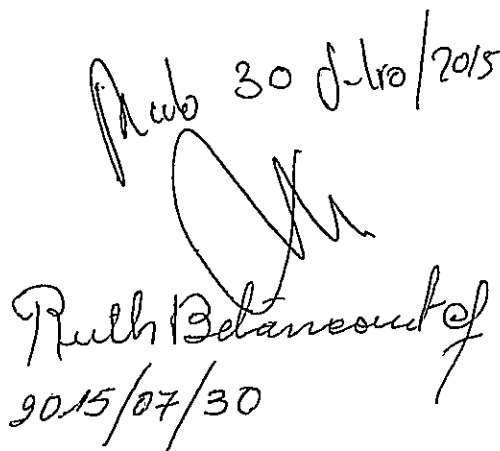 Recibo 30 Julio/2015
Ruth Betancourt
2015/07/30